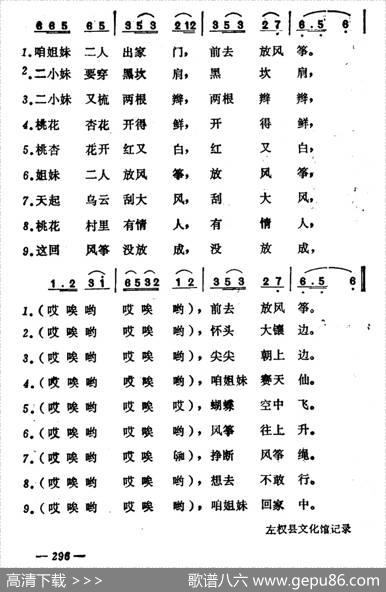 6 6 5 6 5 3 5 3 2 12 3 5 3 2 7 6. 5 6
1.咱姐妹 二人 出家 门，前去 放风 筝。
2.二小妹 要穿 黑坎 肩，黑 坎 肩，
3.二小妹 又梳 两根 辫，两根 辫 辫，
4.桃花 杏花 开得 鲜，开 得 鲜，
5.桃杏 花开 红又 白，红 又 白，
6.姐妹 二人 放风 筝，放 风 筝，
7.天起 乌云 刮大 风，刮 大 风，
8.桃花 村里 有情 人，有 情 人，
9.这回 风筝 没放 成，没 放 成，
1. 2 3 1 6 5 3 2 1 2 3 5 3 2 7 6. 5 6
1.（哎唉哟 哎唉 哟），前去 放风 筝。
2.（哎唉哟 哎唉 哟），怀头 大镶 边。
3.（哎唉哟 哎唉 哟），尖尖 朝上 边。
4.（哎唉哟 哎唉 哟），咱姐妹 赛天 仙。
5.（哎唉哟 哎唉 哎），蝴蝶 空中 飞。
6.（哎唉哟 哎唉 哟），风筝 往上 升。
7.（哎唉哟 哎唉 ），挣断 风筝 绳。
8.（哎唉哟 哎唉 哟），想去 不敢 行。
9.（哎唉哟 哎唉 哟），咱姐妹 回家 中。
左权县文化馆记录
— 296 —
高清下载 >>> 歌谱八六 www.gepu86.com